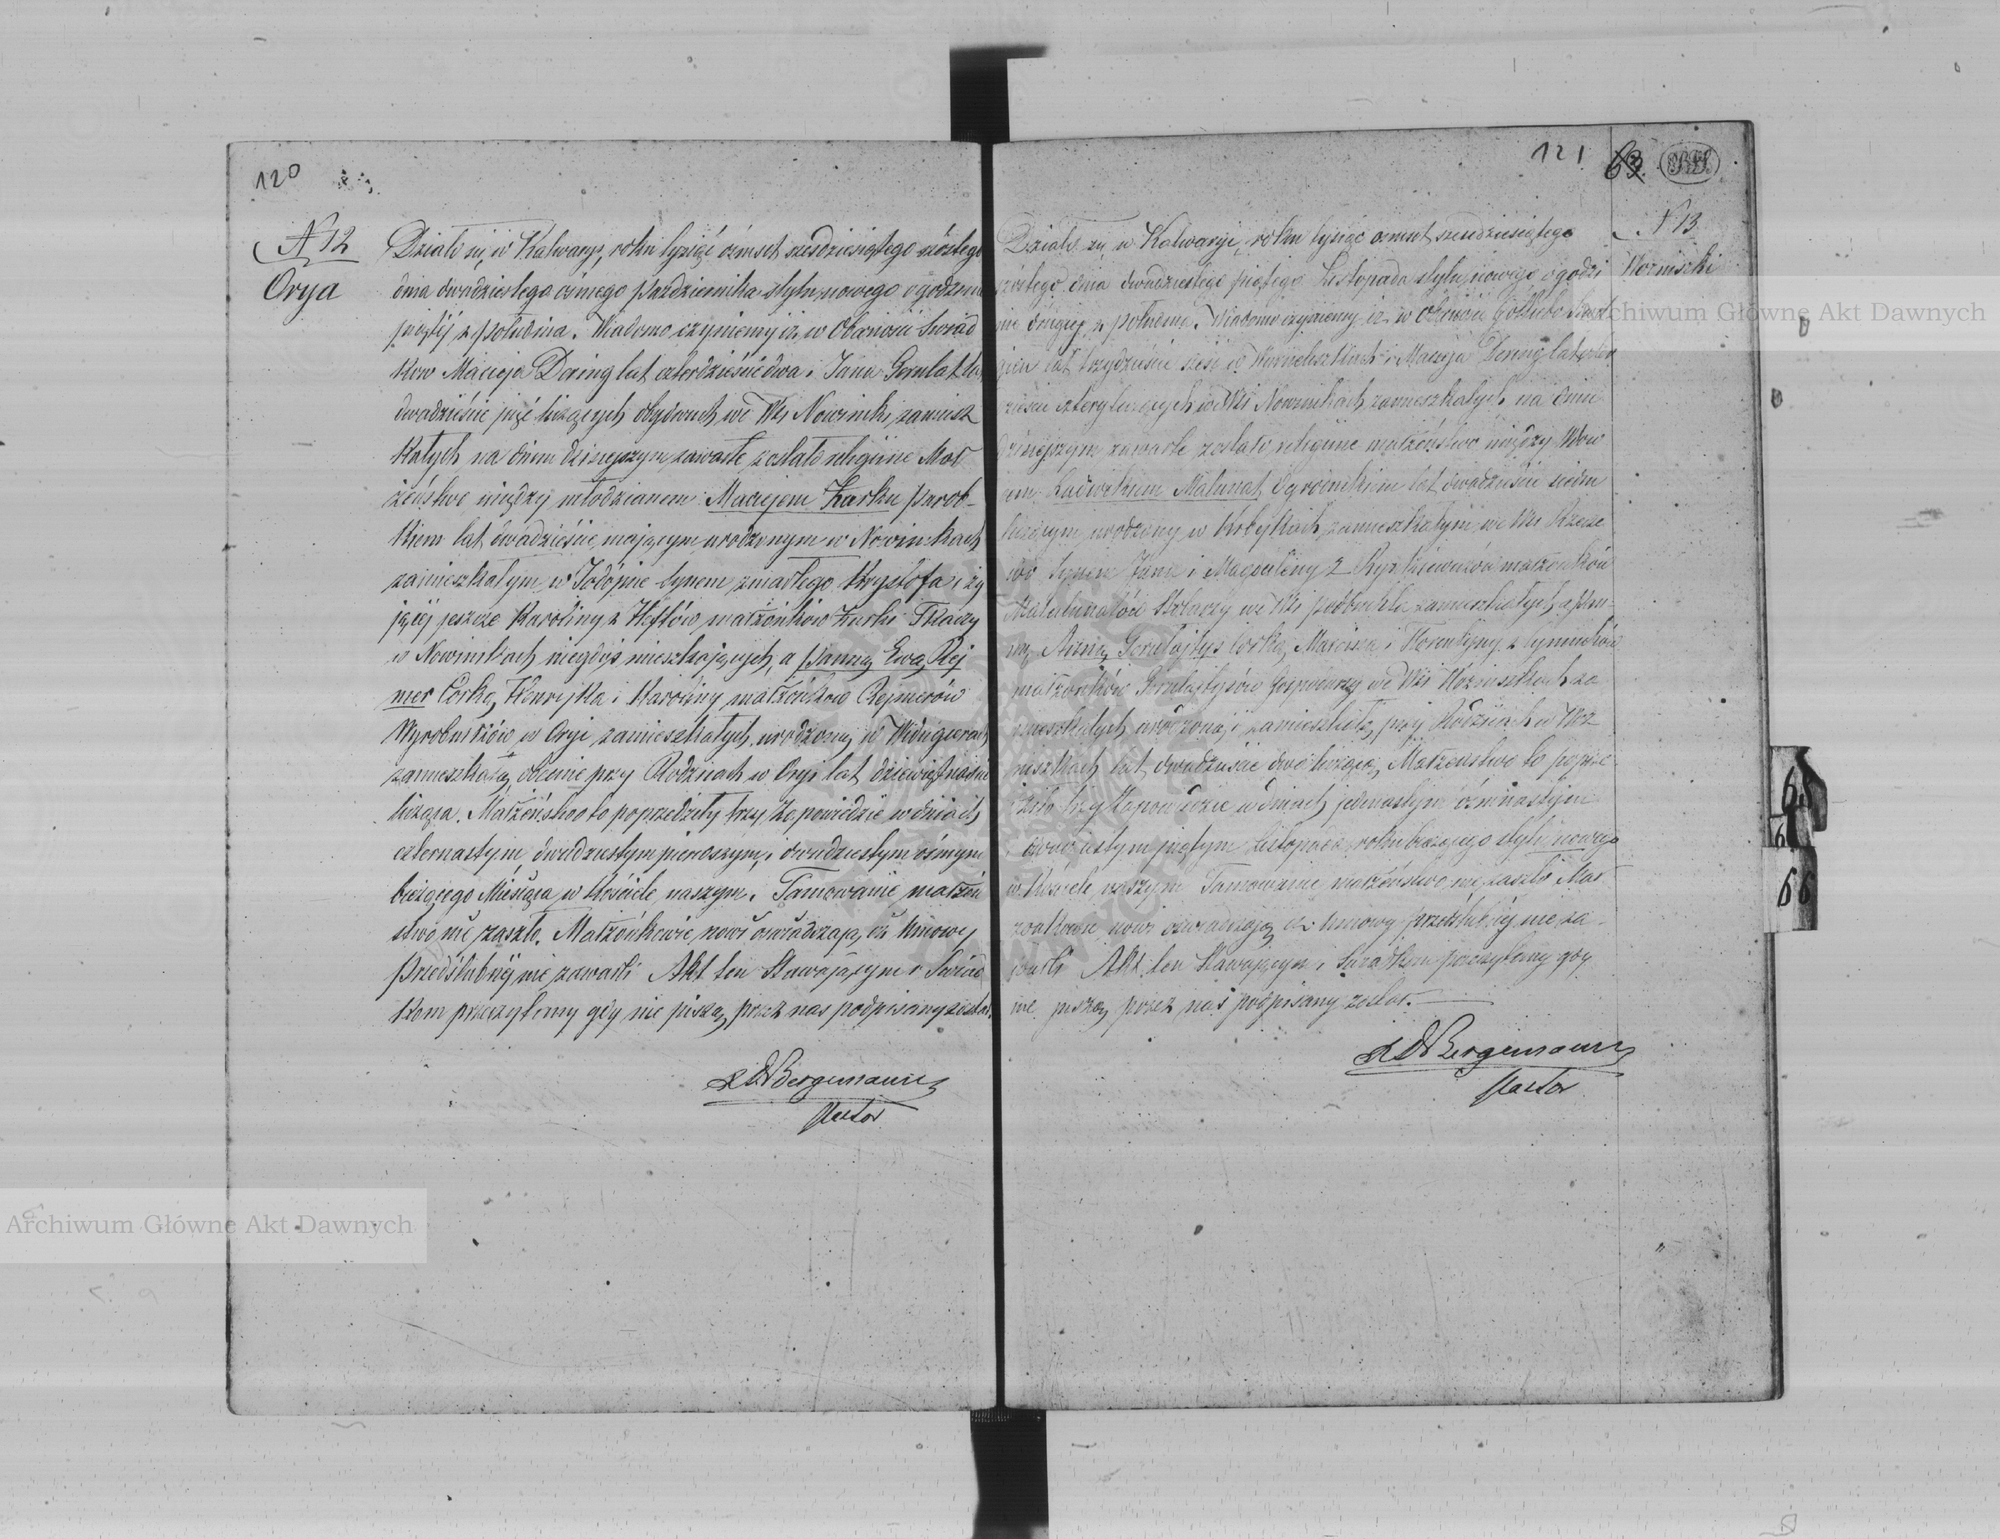 120
N 12
Orya
Działo się w Kalwaryi, roku tysiąć ośmset sześdziesiątego szóstego
dnia dwudziestego ósmego Pazdziernika stylu nowego o godzinie
piątéj z południa. Wiadomo czyniemy iż w Obecności Świad
kow Macieja Dering lat czterdzieście dwa i Jana Gerulat lat
dwadzieście pięć liczących obydwuch we Wsi Nowiniki zamiesz
kałych na dniu dzisiejszym zawarte zostało religijne Mał
żeństwo między młodzianem Maciejem Kurku parob-
kiem lat dwadzieście mającym urodzonym w Nowinikach
zamieszkałym w Jodopie synem zmarłego Krysztofa i ży
jącéj jeszcze Karoliny z małżonków Tkaczy
w Nowinikach niegdyś mieszkających, a Panną Ewą Rej
mer Córką Henryjka i Karoliny małżonków Rejmerów
Wyrobników w Oryi zamieszkałych, urodzoną w
zamieszkałą obecnie przy Rodzicach w Oryi lat dziewiętnaście
licząca. Małżeństwo to poprzedziły trzy Zapowiedzie w dniach
czternastym, dwudziestym pierwszym, i dwudziestym ósmym
bieżącego Miesiąca w Kościele naszym. Tamowanie małżeń
stwa nie zaszło. Małżonkowie nowi oświadczają, iż Umowy
Przedślubnéj nie zawarli Akt ten Stawającym i Świad
kom przeczytany gdy nie piszą, przez nas podpisany został.
Bergemann
Pastor
121
63
N 13
Wozniszki
Działo się w Kalwaryi, roku tysiąc ośmset sześdziesiątego
szóstego dnia dwudziestego piątego Listopada stylu nowego o godzi
nie drugiej z południa. Wiadomo czyniemy iż w Obecności Gottlieba
lat trzydzieście sześć w i Macieja Dering lat czter
dzieście cztery liczących we Wsi Nowinikach zamieszkałych na dniu
dzisiejszym zawarte zostało religijne małżeństwo między Wdow
cem Ludwikiem Malunat, Ogrodnikiem lat dwadzieście siedm
liczącym, urodzony w zamieszkałym we Wsi
synem Jana i Magdaleny z małżonków
we Wsi zamieszkałych, a Pan-
ną Anną Gerulajtys córką Marcina i
małżonków Gerulajtysów Gospodarzy we Wsi Wozniszkach za
mieszkałych urodzoną i zamieszkałą przy Rodzicach w Woz
niszkach lat dwadzieście dwa licząca, Małżeństwo to poprze
dziło trzy Zapowiedzie w dniach jedenastym ośmnastym
i dwudziestym piątym Listopada roku bieżącego stylu nowego
w Kościele naszym Tamowanie małżeństwa nie zaszło Mał
żonkowie nowi oświadczają iż Umowy przedślubnéj nie za
warli Akt ten Stawającym i Świadkom przeczytany gdy
nie piszą, przez nas podpisany został.
Bergemann
Pastor
66
Archiwum Główne Akt Dawnych
Archiwum Główne Akt Dawnych